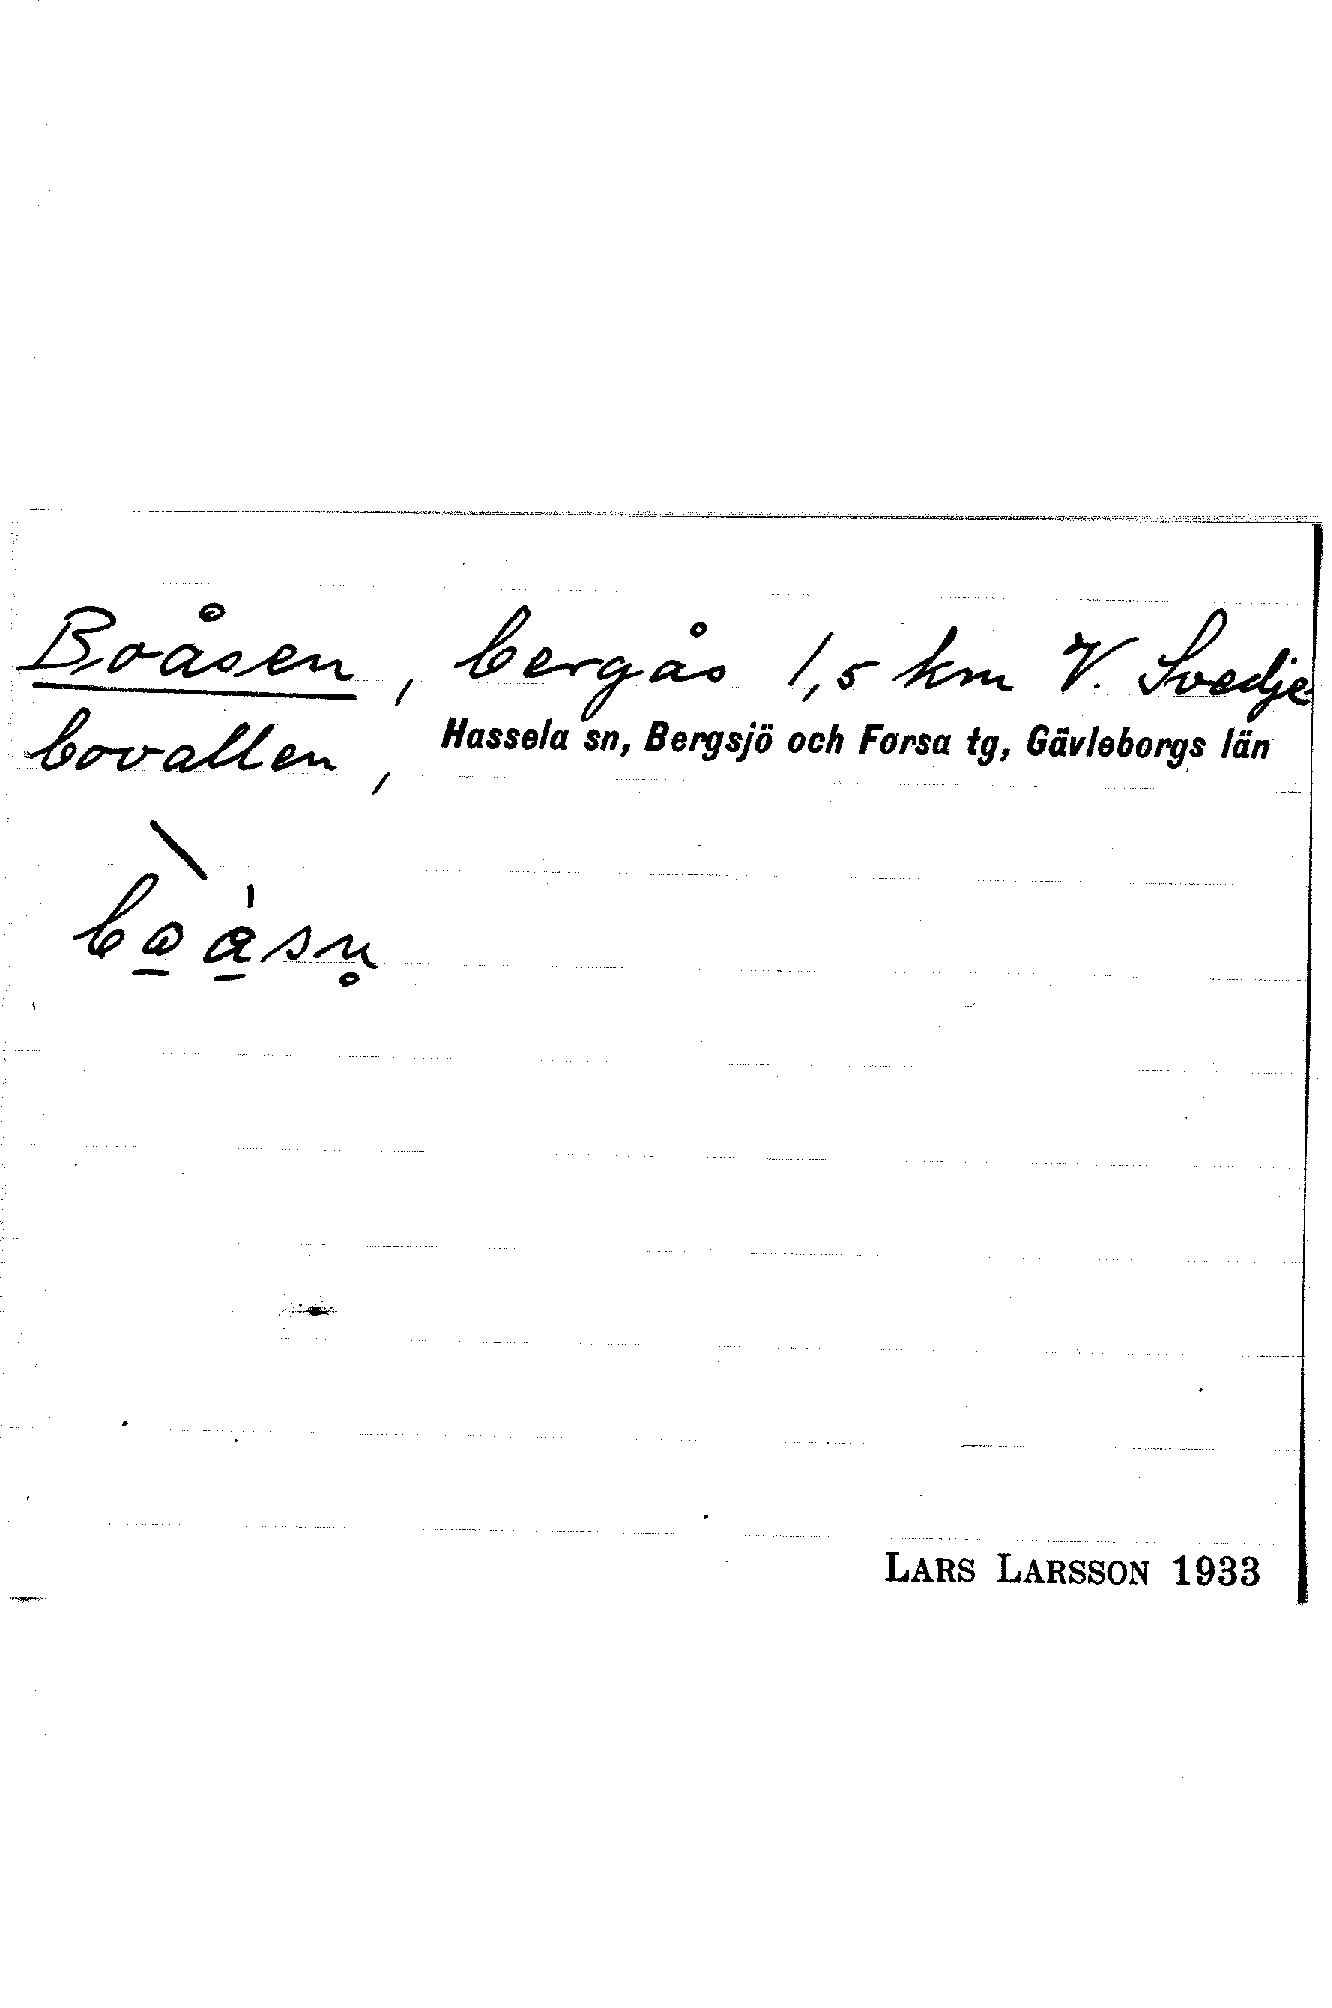 Boåsen, bergås 1,5 km V. Svedje
bovallen, Hassela sn, Bergsjö och Forsa tg, Gävleborgs län
LARS LARSSON 1933